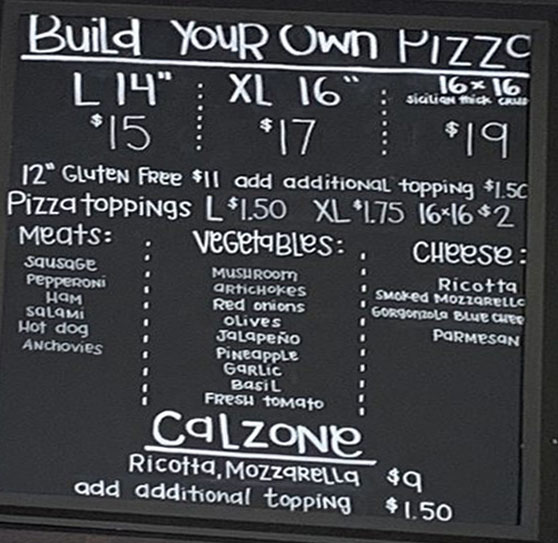 Build Your Own Pizza
L 14" XL 16" 16x16
sicilian thick crust
$15 $17 $19
12" Gluten Free $11 add additional topping $1.50
Pizza toppings L $1.50 XL $1.75 16x16 $2
Meats:
Sausage
Pepperoni
Ham
Salami
Hot dog
Anchovies
Vegetables:
Mushroom
Artichokes
Red onions
Olives
Jalapeño
Pineapple
Garlic
Basil
Fresh tomato
Cheese:
Ricotta
Smoked Mozzarella
Gorgonzola Blue Chee
Parmesan
Calzone
Ricotta, Mozzarella $9
add additional topping $1.50